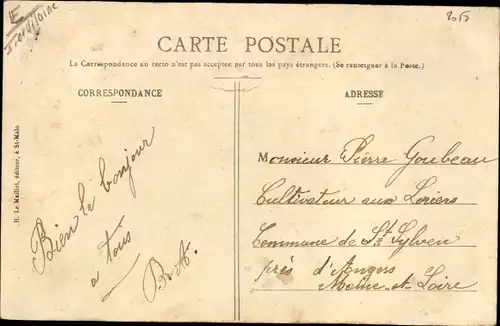 CARTE POSTALE
La Correspondance au recto n'est pas acceptée par tous les pays étrangers. (Se renseigner à la Poste.)
CORRESPONDANCE
ADRESSE
Bien le bonjour
a tous
B. A.
Monsieur Pierre Goubeau
Cultivateur aux Loriers
Commune de St Sylven
près d'Angers
Maine et Loire
H. Le Maillot, éditeur, à St-Malo